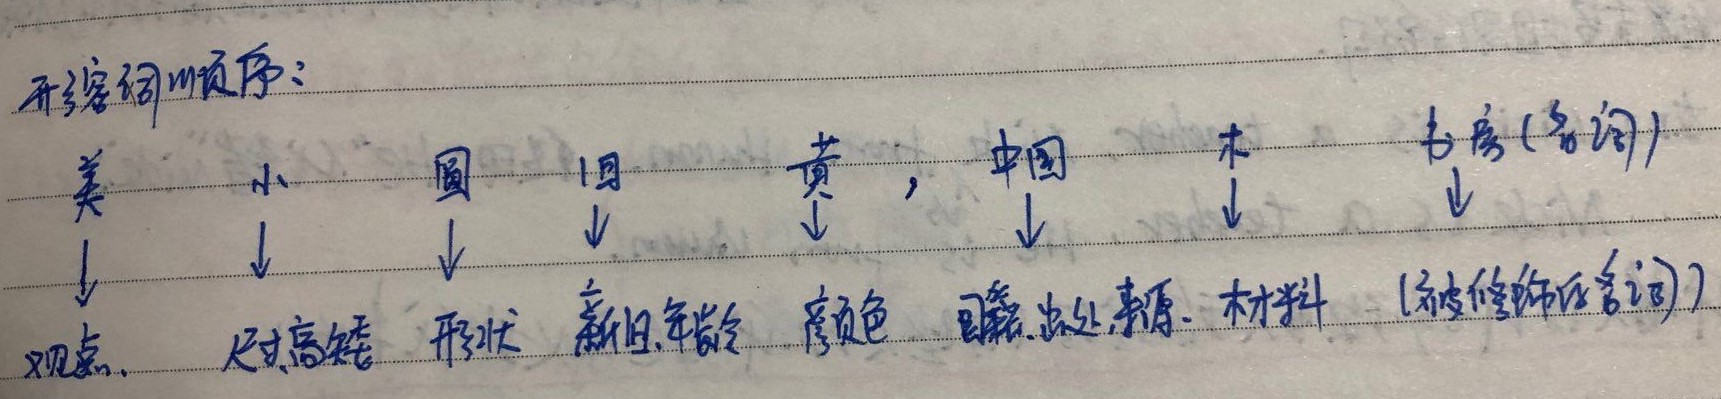 形容词顺序:
美 小 圆 旧 黄, 中国 木 书房(名词)
↓ ↓ ↓ ↓ ↓ ↓ ↓ ↓
观点. 尺寸.高矮 形状 新旧.年龄 颜色 国籍.出处.来源. 材料 (被修饰的名词)